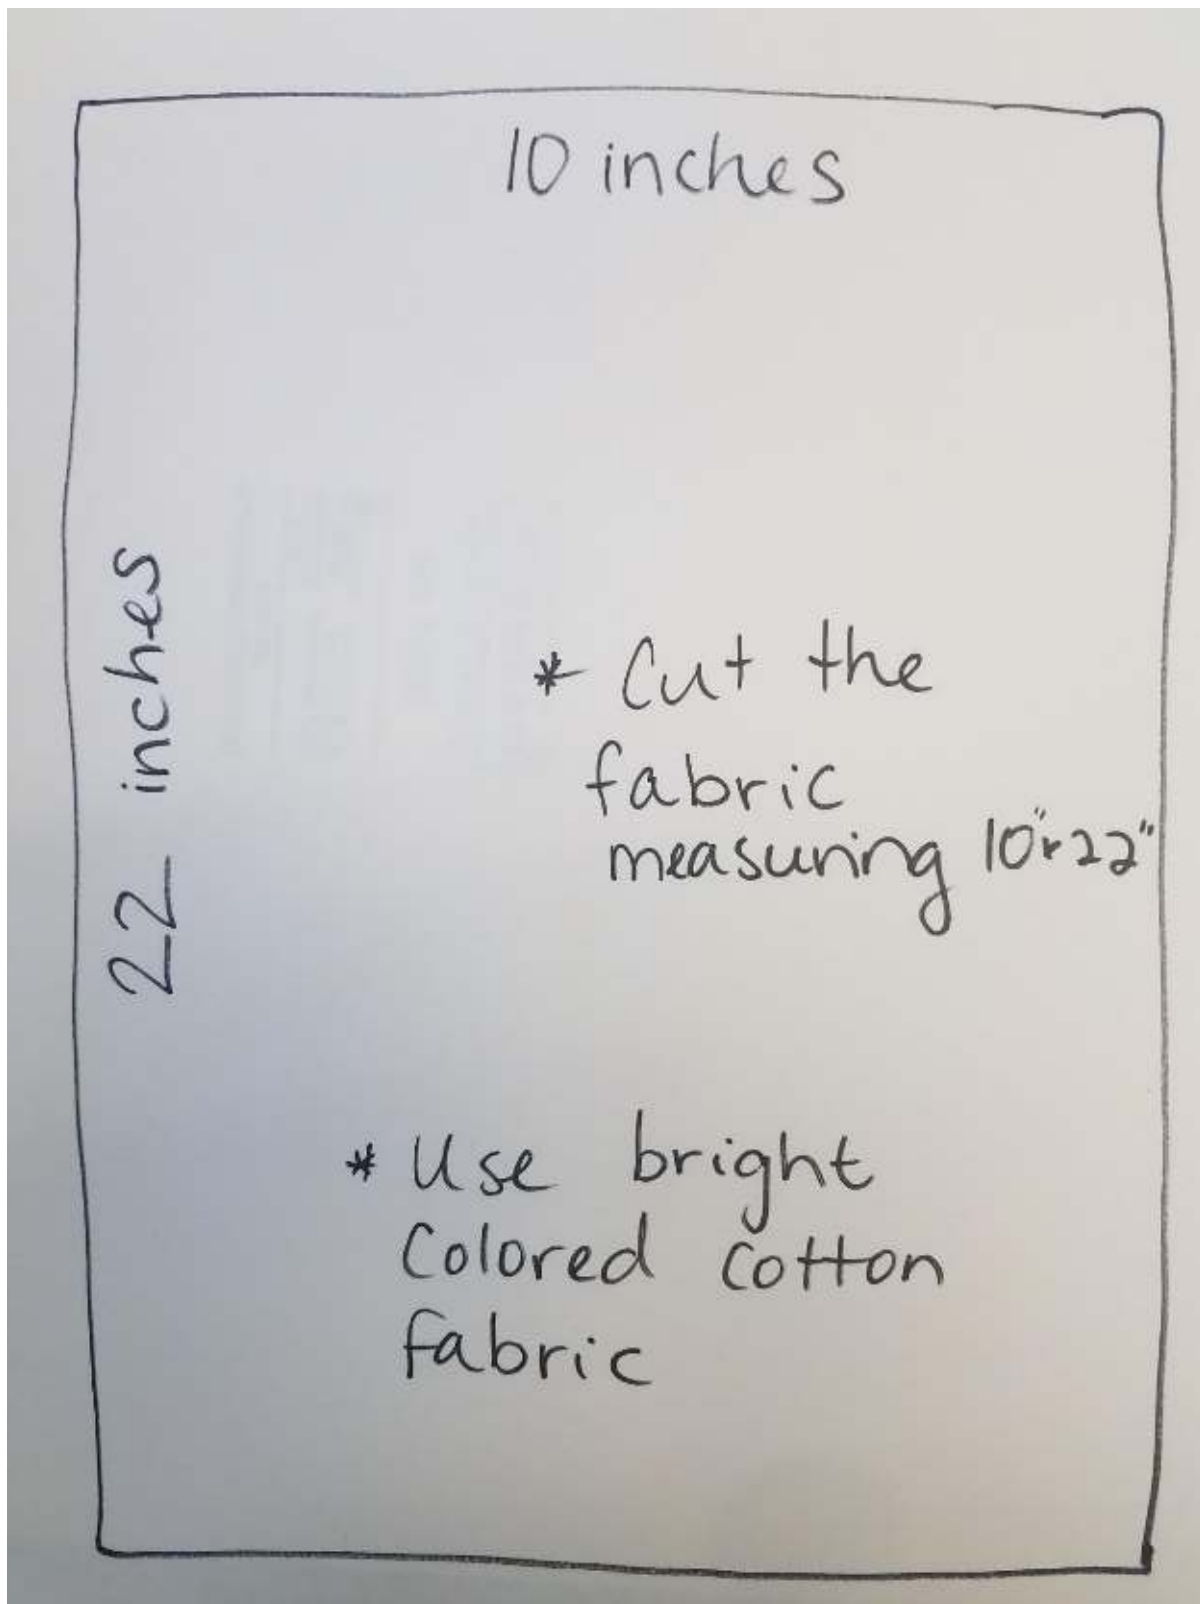 10 inches
22 inches
* Cut the
fabric
measuring 10"x22"
* Use bright
Colored cotton
fabric